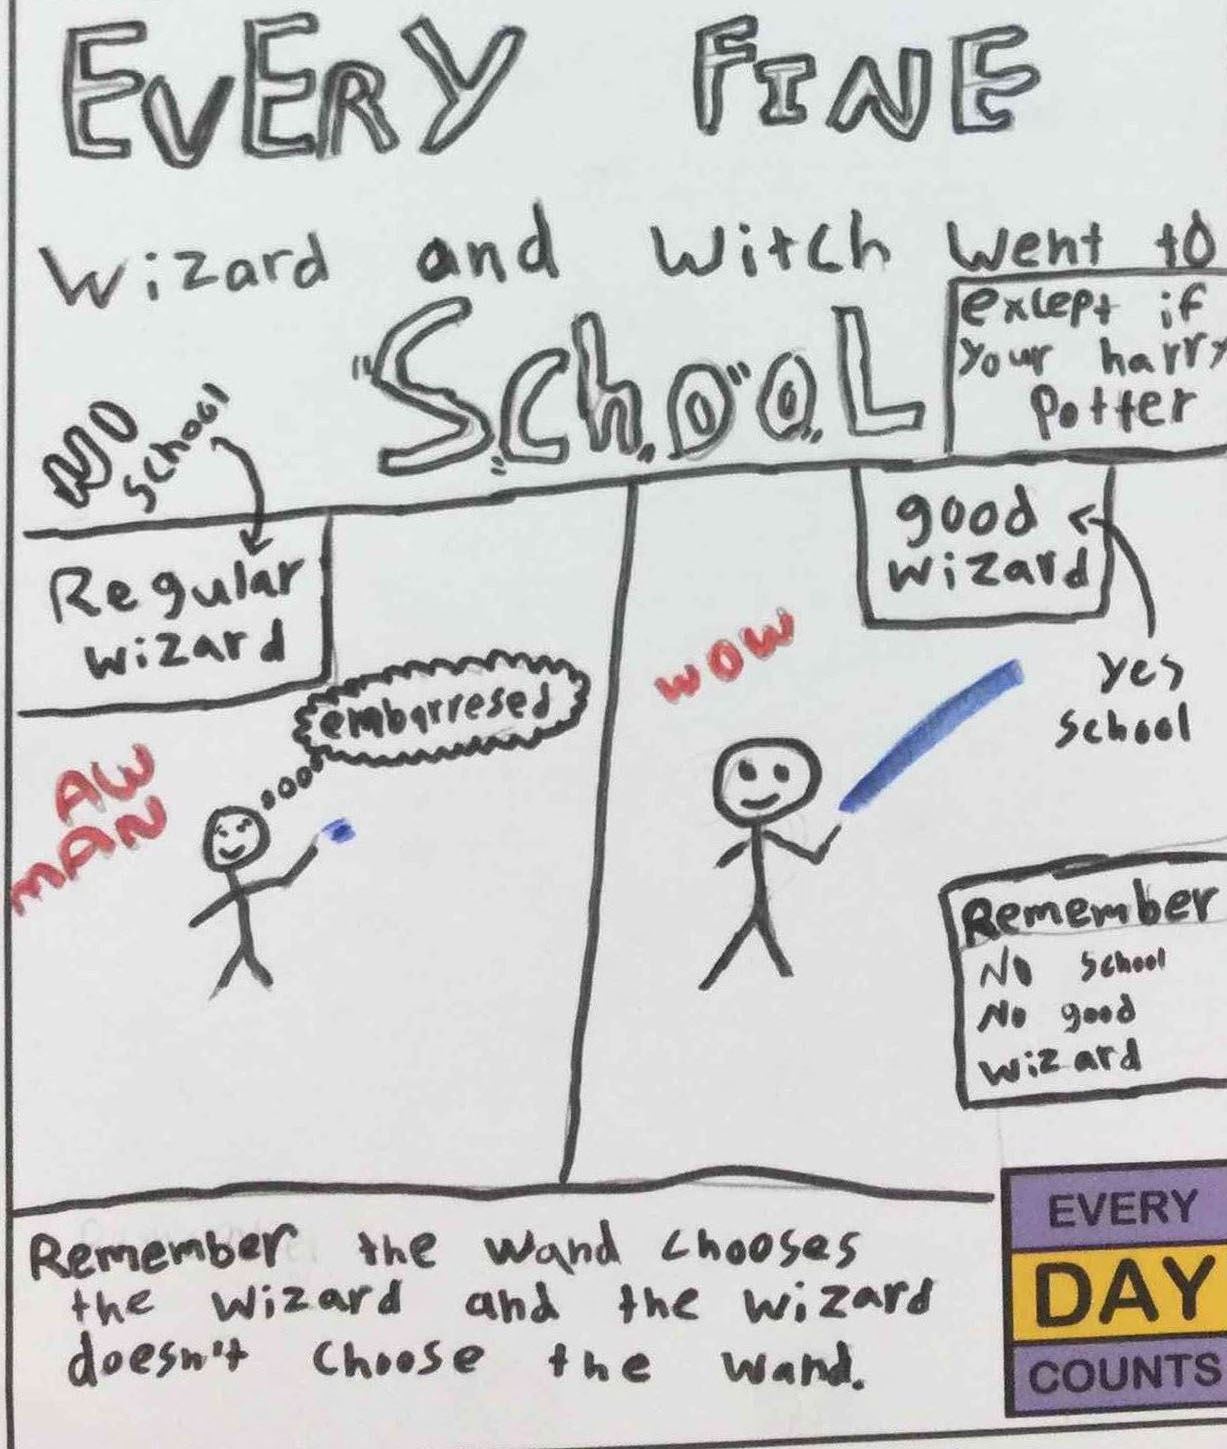 EVERY FINE
Wizard and witch went to
"S.c.h.o.o.L
except if
your harry
Potter
NO
school
Regular
wizard
good
wizard
yes
school
embarresed
AW
MAN
WOW
Remember
No school
No good
wizard
Remember the wand chooses
the wizard and the wizard
doesn't choose the wand.
EVERY
DAY
COUNTS